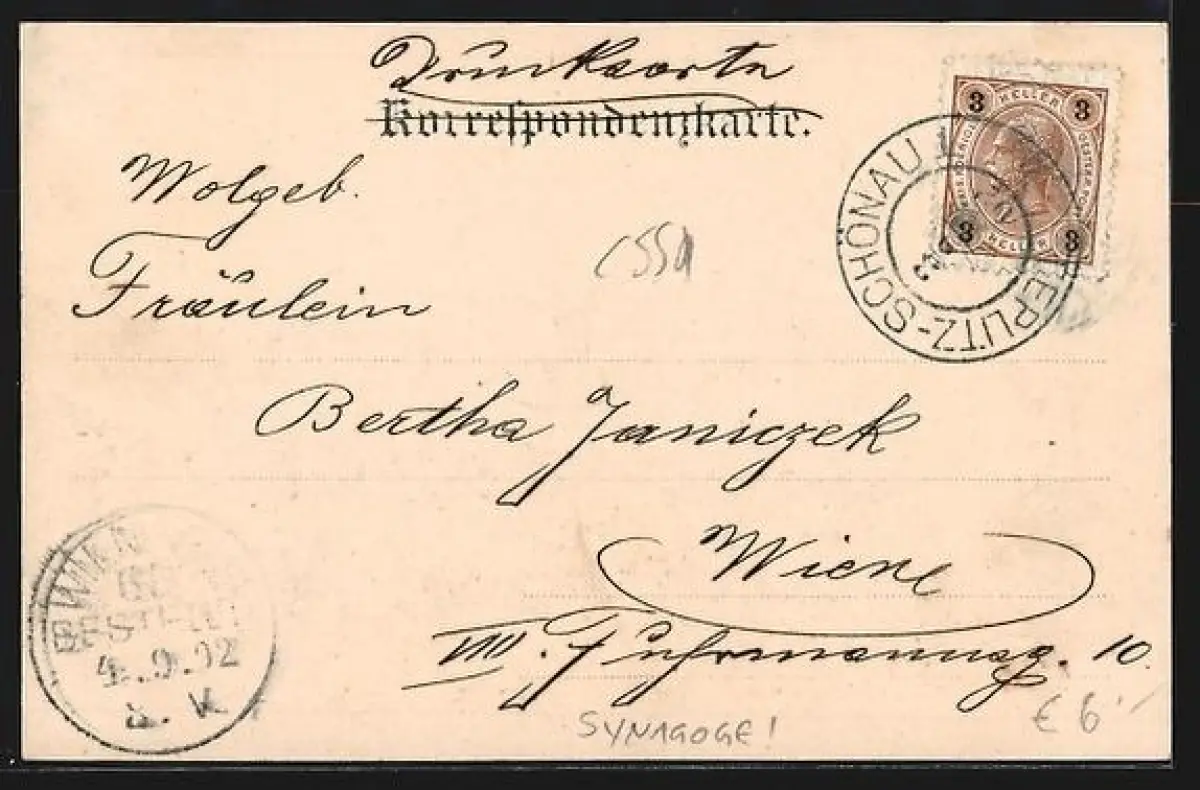 Drucksorte
Korrespondenzkarte.
3 HELLER 3
3 HELLER 3
TEPLITZ-SCHÖNAU
Wolgeb.
Fräulein
Bertha Janiczek
Wien
VIII. Fuhrmannsg. 10.
WIEN
BESTELLT
4.9.02
SYNAGOGE!
€ 6